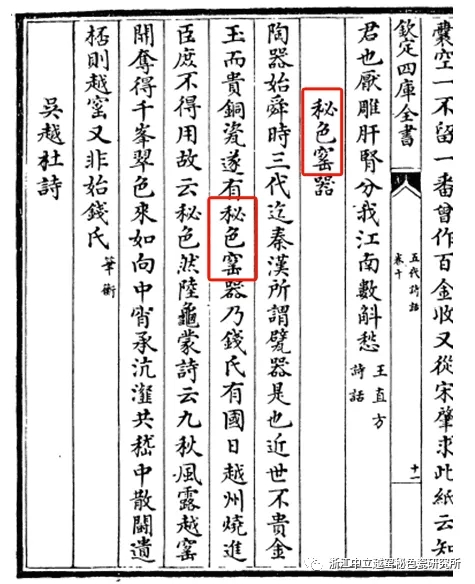 囊空一不留一番曾作百金收又從宋肇求此紙云知
欽定四庫全書
五代詩話
卷十
十一
君也厭雕肝腎分我江南數斛愁
王直方
詩話
秘色窰器
陶器始舜時三代迄秦漢所謂甓器是也近世不貴金
玉而貴銅瓷遂有秘色窰器乃錢氏有國日越州燒進
臣庶不得用故云秘色然陸龜蒙詩云九秋風露越窰
開奪得千峯翠色來如向中宵承沆瀣共嵇中散闘遺
桮則越窰又非始錢氏
筆衡
吳越杜詩
浙江中立越窑秘色瓷研究所